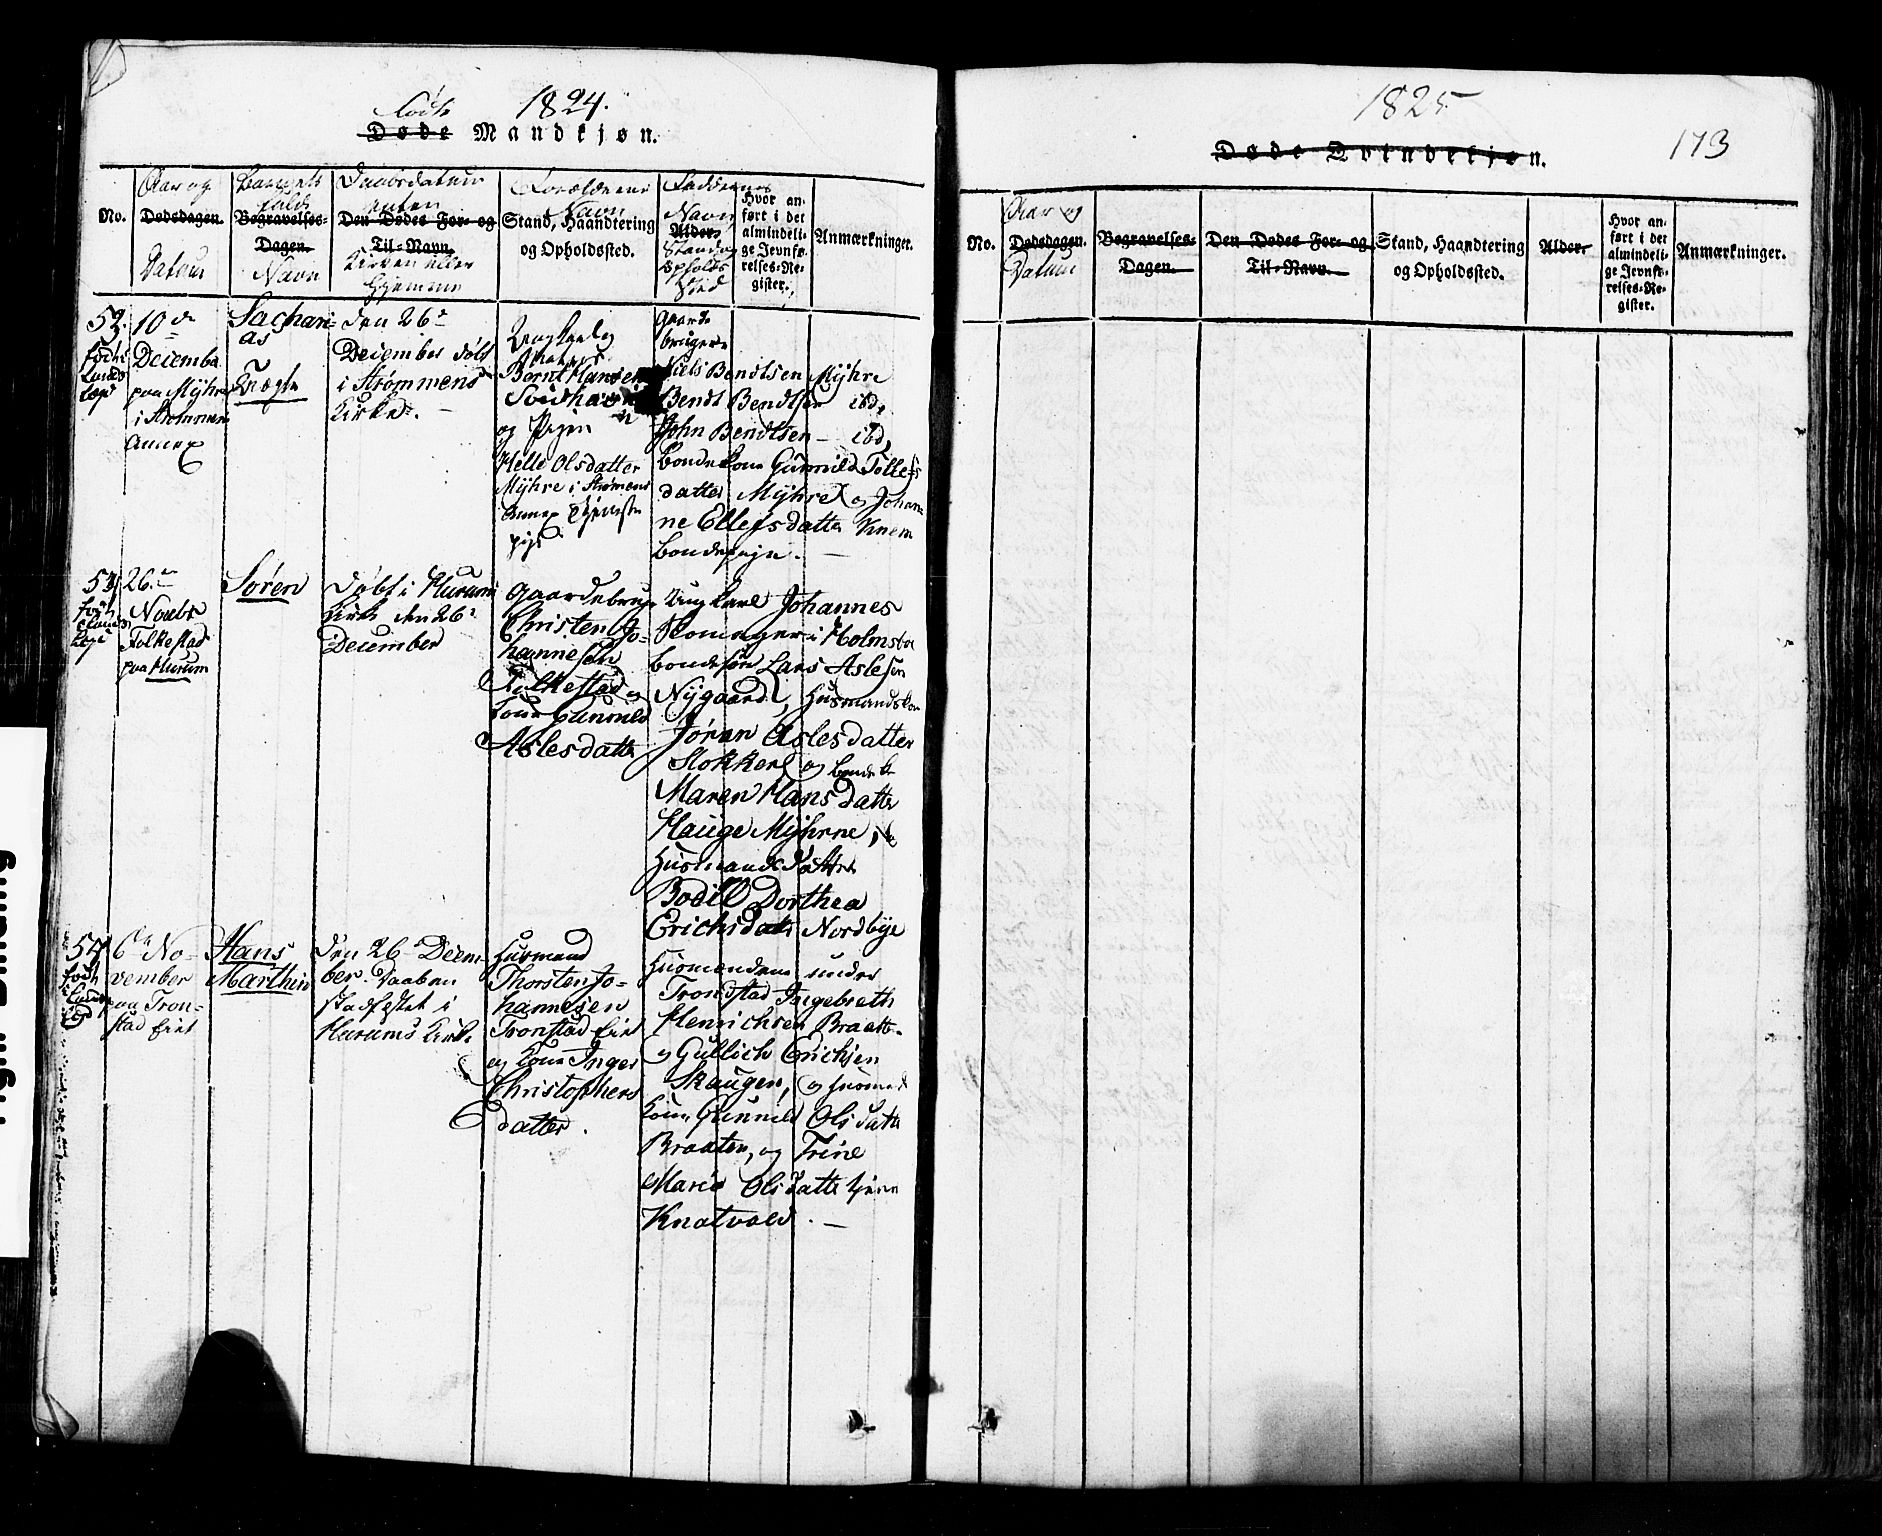 1824.
Døde Mandkjøn.
Aar og
Datum
No.
Dødsdagen.
Barnets
fulde
Begravelses-
Dagen.
Navn
Daabsdatum
enten
Den Dødes For- og
Til-Navn.
Kirken eller
Hjemme
Forældrenes
Navn
Stand, Haandtering
og Opholdssted.
Faddernes
Navn,
Alder.
Stand og
Opholds
Sted
Hvor an-
ført i det
almindeli-
ge Jevnfø-
relses-Re-
gister.
Anmærkninger.
52.
10de
Decemba
paa Mÿhre
i Strømmen
Annex
Sachari-
as
Uægte
den 26de
December døbt
i Strømmens
Kirke.
Ungkarl og
Bernt Hansen
og Pigen
Helle Olsdatter
Mÿhre i Strømens
Annex
pige
Gaard-
bruger
Niels Bendtsen Mÿhre
Bendt Bendtsen ibd,
John Bendtsen — ibd,
bondekone Gunnild Tollefs
datter Mÿhre og Johan-
ne Ellefsdatter Knem
bondepige. —
53
26de
Novebr
Folkestad
paa Hurum
Søren
døbt i Hurums
Kirke den 26de
December
Gaardebruger
Christen Jo-
hannesen
Folkestad og
Kone Gunnild
Aslesdatter
Ung karl Johannes
Skomager i Holmsbo
bondesøn Lars Aslesen
Nÿgaard, Husmandskone
Jøran Aslesdatter
Stokker og bonde k
Maren Hansdatter
Hauge Mÿhrne,
Husmands datter
Bodill Dorthea
Erichsdatter Nordbÿe
54
6te No-
vember
paa Tron-
stad Eiet
Hans
Marthin
den 26de Decem-
ber. Daaben
stadfæstet i
Hurums Kirke
Husmand
Thorsten Jo-
hannesen
Tronstad Eiet
og Kone Inger
Christophers
datter.
Husmændene under
Trondstad Ingebreth
Henrichsen Braaten
og Gullich Erichsen
Skaugen, og husmands
kone Gunnild Olsdatter
Braaten, og Trine
Marie Olsdatter tjener
Knatvold. —
1825
173
Døde Qvindekjøn.
Aar og
No.
Dødsdagen.
Datum
Begravelses-
Dagen.
Den Dødes For- og
Til-Navn.
Stand, Haandtering
og Opholdssted.
Alder.
Hvor an-
ført i det
almindeli-
ge Jevnfø-
relses-Re-
gister.
Anmærkninger.